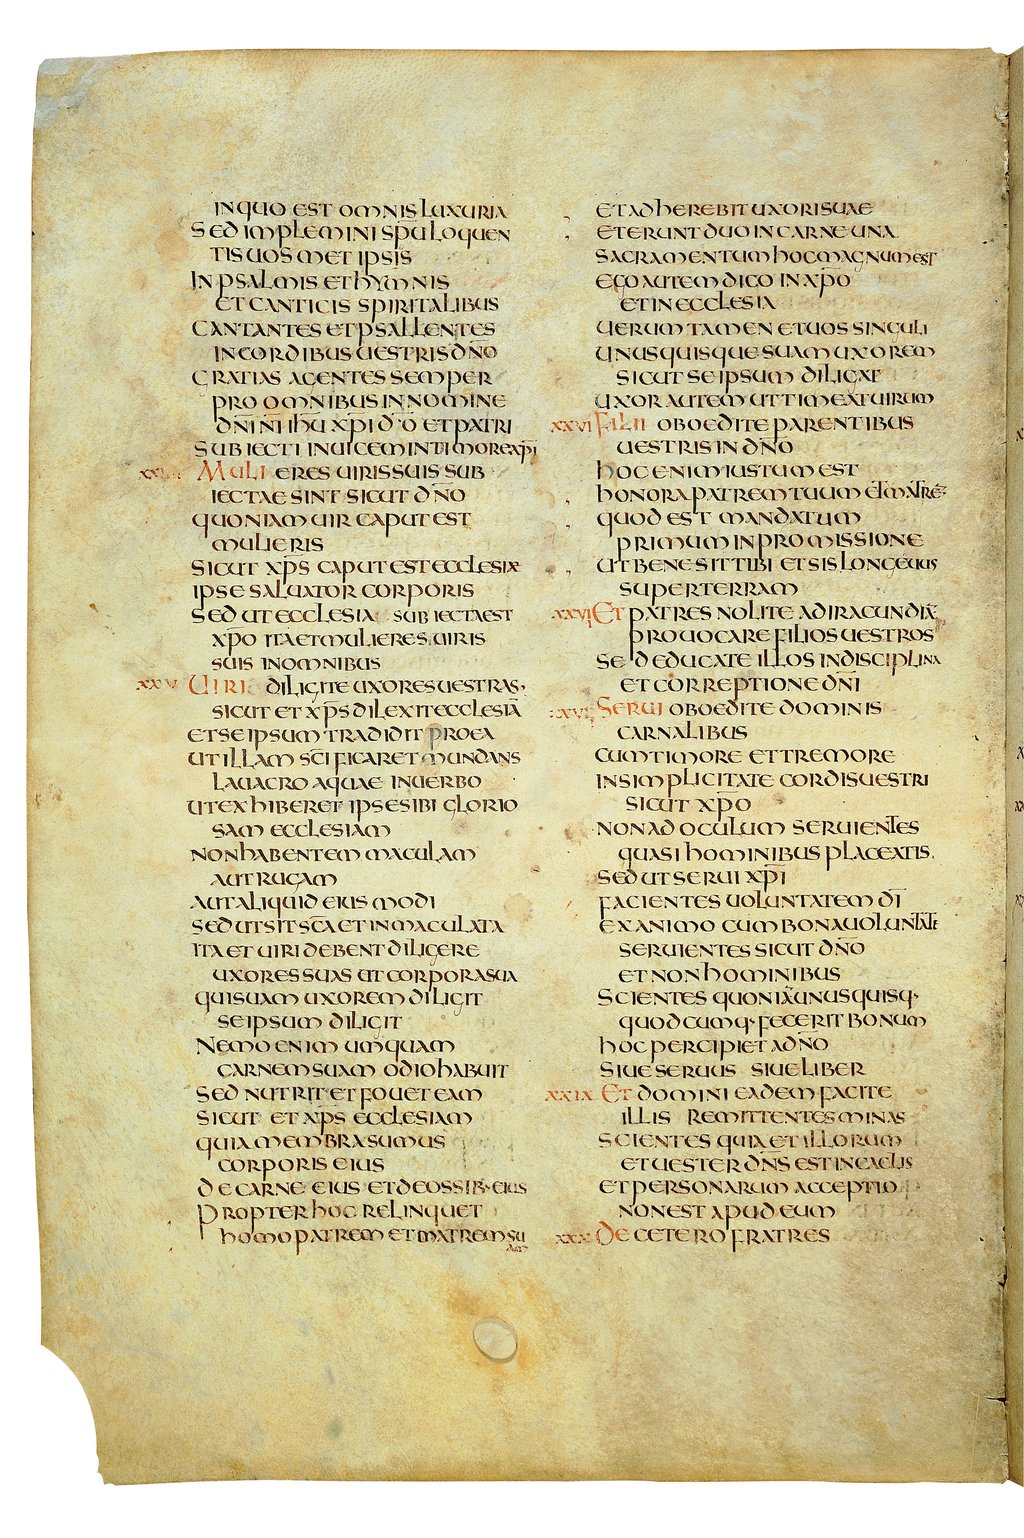 IN QUO EST OMNIS LUXURIA
SED IMPLEMINI SPU LOQUEN
TIS UOSMET IPSIS
IN PSALMIS ET HYMNIS
ET CANTICIS SPIRITALIBUS
CANTANTES ET PSALLENTES
IN CORDIBUS UESTRIS DÑO
GRATIAS AGENTES SEMPER
PRO OMNIBUS IN NOMINE
DÑI ÑI IHŪ XP̄I DŌ ET PATRI
SUBIECTI INUICEM IN TIMORE XP̄I
MULIERES UIRIS SUIS SUB
IECTAE SINT SICUT DÑO
QUONIAM UIR CAPUT EST
MULIERIS
SICUT XP̄S CAPUT EST ECCLESIAE
IPSE SALUATOR CORPORIS
SED UT ECCLESIA SUBIECTA EST
XP̄O ITA ET MULIERES UIRIS
SUIS IN OMNIBUS
XXV UIRI DILIGITE UXORES UESTRAS
SICUT ET XP̄S DILEXIT ECCLESIĀ
ET SE IPSUM TRADIDIT PRO EA
UT ILLAM SC̄IFICARET MUNDANS
LAUACRO AQUAE IN UERBO
UT EXHIBERET IPSE SIBI GLORIO
SAM ECCLESIAM
NON HABENTEM MACULAM
AUT RUGAM
AUT ALIQUID EIUSMODI
SED UT SIT SC̄A ET INMACULATA
ITA ET UIRI DEBENT DILIGERE
UXORES SUAS UT CORPORA SUA
QUI SUAM UXOREM DILIGIT
SE IPSUM DILIGIT
NEMO ENIM UMQUAM
CARNEM SUAM ODIO HABUIT
SED NUTRIT ET FOUET EAM
SICUT ET XP̄S ECCLESIAM
QUIA MEMBRA SUMUS
CORPORIS EIUS
DE CARNE EIUS ET DE OSSIB· EIUS
PROPTER HOC RELINQUET
HOMO PATREM ET MATREM SU
AM
ET ADHEREBIT UXORI SUAE
ET ERUNT DUO IN CARNE UNA
SACRAMENTUM HOC MAGNUM EST
EGO AUTEM DICO IN XP̄O
ET IN ECCLESIA
UERUM TAMEN ET UOS SINGULI
UNUSQUISQUE SUAM UXOREM
SICUT SE IPSUM DILIGAT
UXOR AUTEM UT TIMEAT UIRUM
XXVI FILII OBOEDITE PARENTIBUS
UESTRIS IN DÑO
HOC ENIM IUSTUM EST
HONORA PATREM TUUM ET MATRĒ
QUOD EST MANDATUM
PRIMUM IN PROMISSIONE
UT BENE SIT TIBI ET SIS LONGEUUS
SUPER TERRAM
XXVII ET PATRES NOLITE AD IRACUNDIĀ
PROUOCARE FILIOS UESTROS
SED EDUCATE ILLOS IN DISCIPLINA
ET CORREPTIONE DÑI
SERUI OBOEDITE DOMINIS
CARNALIBUS
CUM TIMORE ET TREMORE
IN SIMPLICITATE CORDIS UESTRI
SICUT XP̄O
NON AD OCULUM SERUIENTES
QUASI HOMINIBUS PLACENTIS
SED UT SERUI XP̄I
FACIENTES UOLUNTATEM DĪ
EX ANIMO CUM BONA UOLUNTATE
SERUIENTES SICUT DÑO
ET NON HOMINIBUS
SCIENTES QUONIĀ UNUSQUISQ·
QUODCUMQ· FECERIT BONUM
HOC PERCIPIET A DÑO
SIUE SERUUS SIUE LIBER
XXIX ET DOMINI EADEM FACITE
ILLIS REMITTENTES MINAS
SCIENTES QUIA ET ILLORUM
ET UESTER DÑS EST IN CAELIS
ET PERSONARUM ACCEPTIO
NON EST APUD EUM
XXX DE CETERO FRATRES